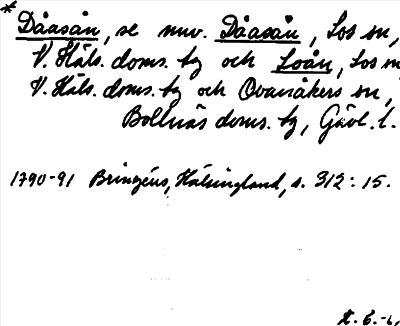 * Dåasån, se nuv. Dåasån, Los sn,
V. Häls. doms. bg och Loån, Los sn
V. Häls. doms. bg och Ovanåkers sn,
Bollnäs doms. bg, Gävl. l.
1790-91 Bringéus, Hälsingland, s. 312: 15.